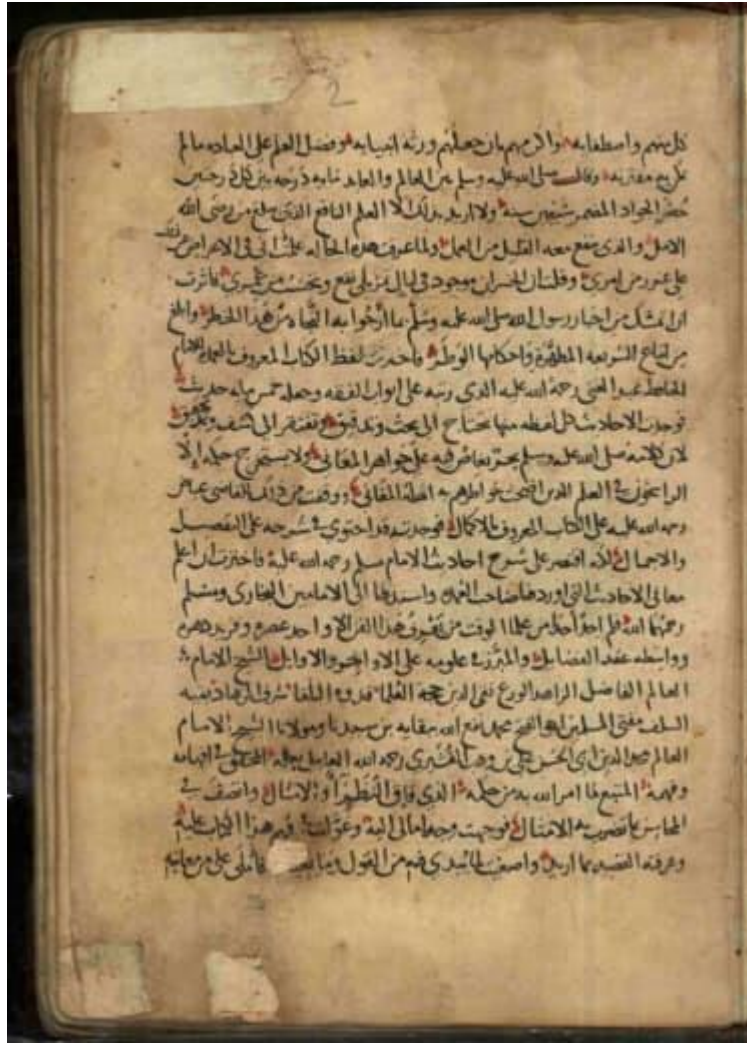 كل منهم واصطفابه واكرمهم بان جعلهم ورثة انبيابه وفضل العلم على العباده مالم
وقال صلى الله عليه وسلم بين العالم والعابد مايه درجه بين كل درجتين
حضر الجواد المضمر سبعين سنة ولا اريد بذلك الا العلم النافع الذى يبلغ من رضى الله
الامل والذى ينفع معه القليل من العمل ولما عرفت هذه الحاله
على غرر من امرى وقلت ان الخسران موجود فى ليال تمر بلا نفع وتحسب من عمرى فاثرت
ان اتمسك من اخبار رسول الله صلى الله عليه وسلم بما ارجوا به النجاه من هذا الخطر وابلغ
من اتباع الشريعه المطهرة واحكامها الوطر فاخذت لفظ الكتاب المعروف بالعمدة للامام
الحافظ عبد الغنى رحمة الله عليه الذى رتبه على ابواب الفقه وجعله خمس مايه حديث
فوجدت الاحاديث كل لفظه منها تحتاج الى بحث وتدقيق وتفتقر الى كشف وتحقيق
لان كلامه صلى الله عليه وسلم بحر يغاص فيه على جواهر المعانى ولا يستخرج حكمه الا
الراسخون فى العلم الذين اضحت خواطرهم به اهلة المغانى ووقفت من ذلك للقاضى عياض
رحمة الله عليه على الكتاب المعروف بالاكمال فوجدته قد احتوى فى شرحه على التفصيل
والاجمال الا انه اقتصر على شرح احاديث الامام مسلم رحمة الله عليه فاخترت ان اعلم
معانى الاحاديث التى اوردها صاحب العمدة واسندها الى الامامين البخارى ومسلم
رحمهما الله فلم اجد احدا من علما الوقت من يعرف هذا الفن الا واحد عصره وفريد دهره
وواسطه عقد الفضايل والمبرز فى علومه على الاواخر والاوايل الشيخ الامام
العالم الفاضل الزاهد الورع تقى الدين حجة العلما قدوه البلغا شرف الزهاد بقية
السلف مفتى المسلمين ابو الفتح محمد نفع الله ببقايه بن سيدنا ومولانا الشيخ الامام
العالم مجد الدين ابى الحسن على بن وهب القشيرى رحمه الله العامل بعلمه المحقق فى افهامه
وفهمه المتبع لما امر الله به من حكمه الذى فاق النظراء والامثال واتصف فى
المحاسن بما تضرب به الامثال فوجهت وجه امالى اليه وعولت فى فهم هذا الكتاب عليه
وعرفته القصيد مما اريد واصغيت لما يبدى فيه من القول وما يعيد فاملى على من معانيه